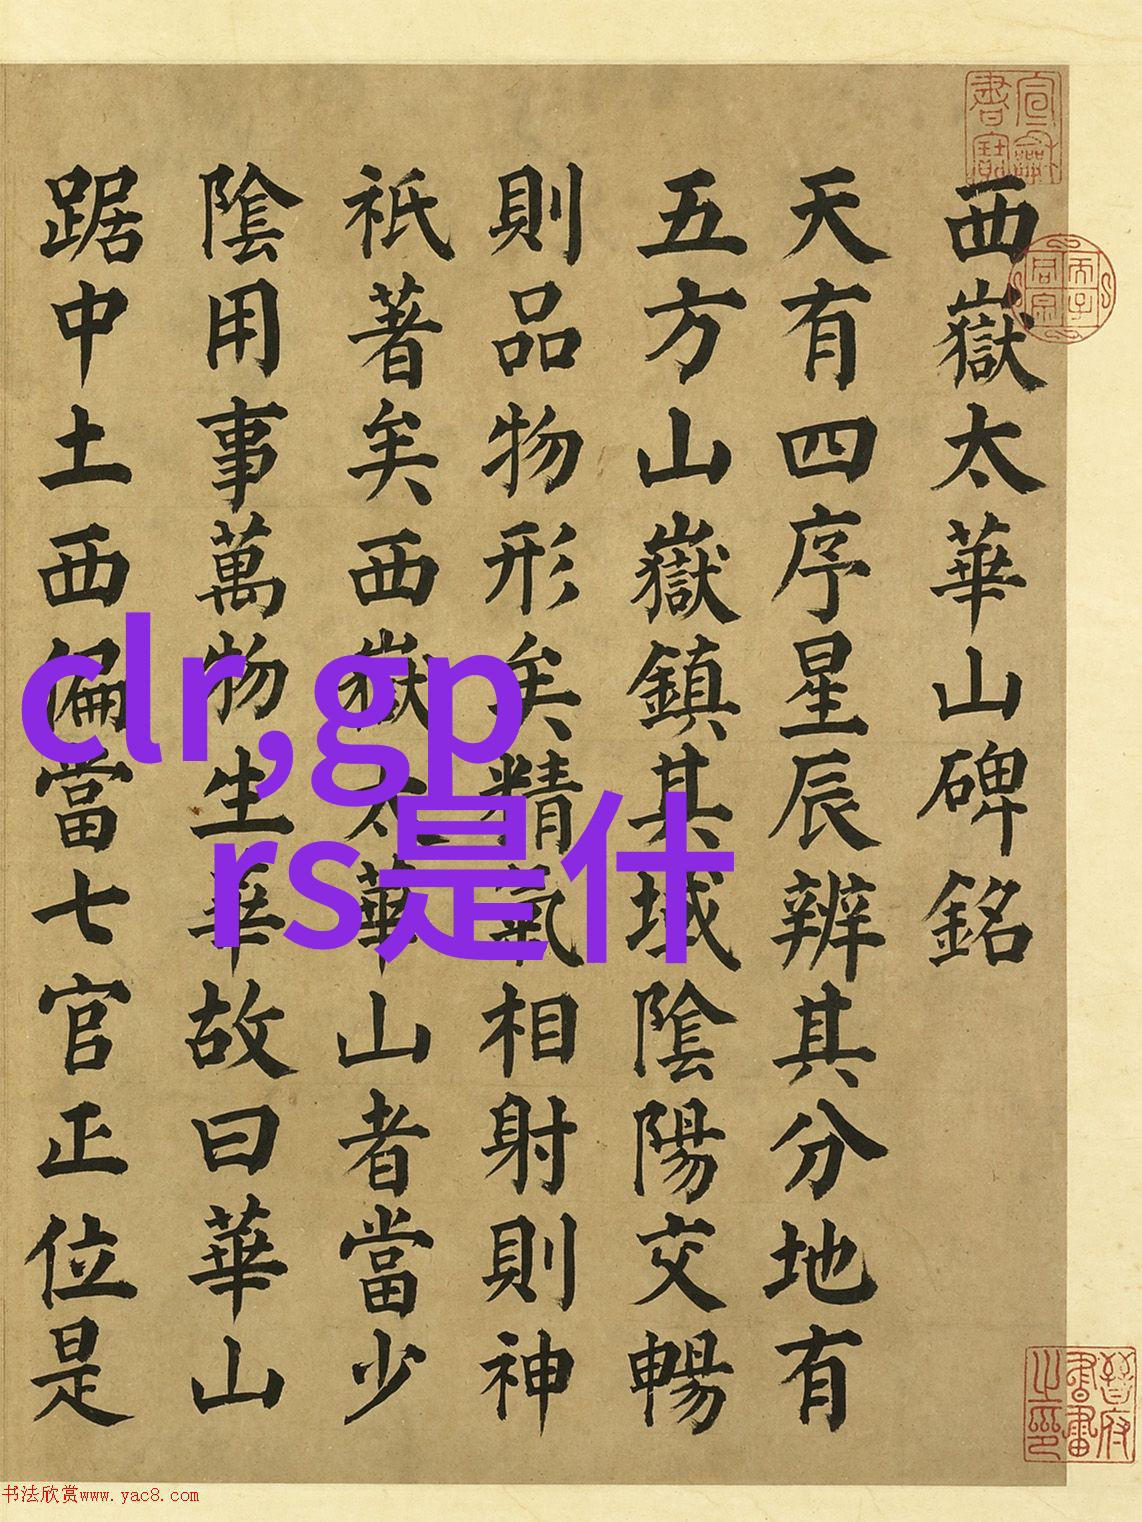 西嶽太華山碑銘
天有四序星辰辨其分地有
五方山嶽鎮其域陰陽交暢
則品物形矣精氣相射則神
祇著矣西嶽太華山者當少
陰用事萬物生華故曰華山
踞中土西偏當七官正位是
clr,gp
rs是什
宣龢書寶
晉府書畫之印
书法欣赏www.yac8.com